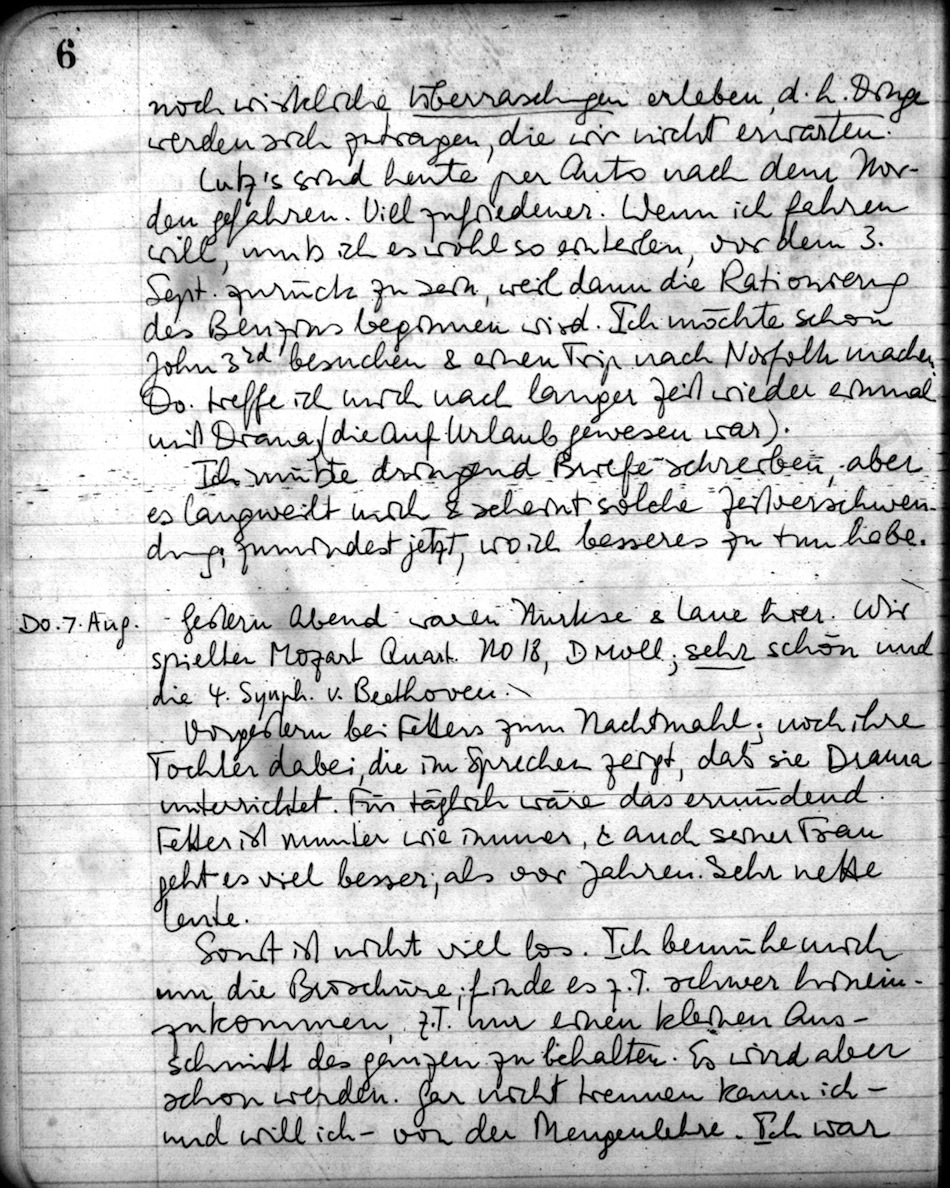 6
noch wirkliche Überraschungen erleben, d.h. Dinge
werden sich zutragen, die wir nicht erwarten.
Lutz's sind heute per Auto nach dem Nor-
den gefahren. Viel zufriedener. Wenn ich fahren
will, muß ich es wohl so einteilen, vor dem 3.
Sept. zurück zu sein, weil dann die Rationierung
des Benzins beginnen wird. Ich möchte schon
John 3rd besuchen & einen Trip nach Norfolk machen.
Do. treffe ich mich nach langer Zeit wieder einmal
mit Diana (die auf Urlaub gewesen war).
Ich müßte dringend Briefe schreiben, aber
es langweilt mich & scheint solche Zeitverschwen-
dung, zumindest jetzt, wo ich besseres zu tun habe.
Do. 7. Aug. Gestern Abend waren Nurkse & Laue hier. Wir
spielten Mozart Quart. No 18, D Moll; sehr schön und
die 4. Symph. v. Beethoven.
Vorgestern bei Fetters zum Nachtmahl; noch ihre
Tochter dabei, die im Sprechen zeigt, daß sie Drama
unterrichtet. Für täglich wäre das ermüdend.
Fetter ist munter wie immer, & auch seiner Frau
geht es viel besser, als vor Jahren. Sehr nette
Leute.
Sonst ist nicht viel los. Ich bemühe mich
um die Broschüre; finde es z.T. schwer hinein-
zukommen, z.T. nur einen kleinen Aus-
schnitt des ganzen zu behalten. Es wird aber
schon werden. Gar nicht trennen kann ich –
und will ich – von der Mengenlehre. Ich war